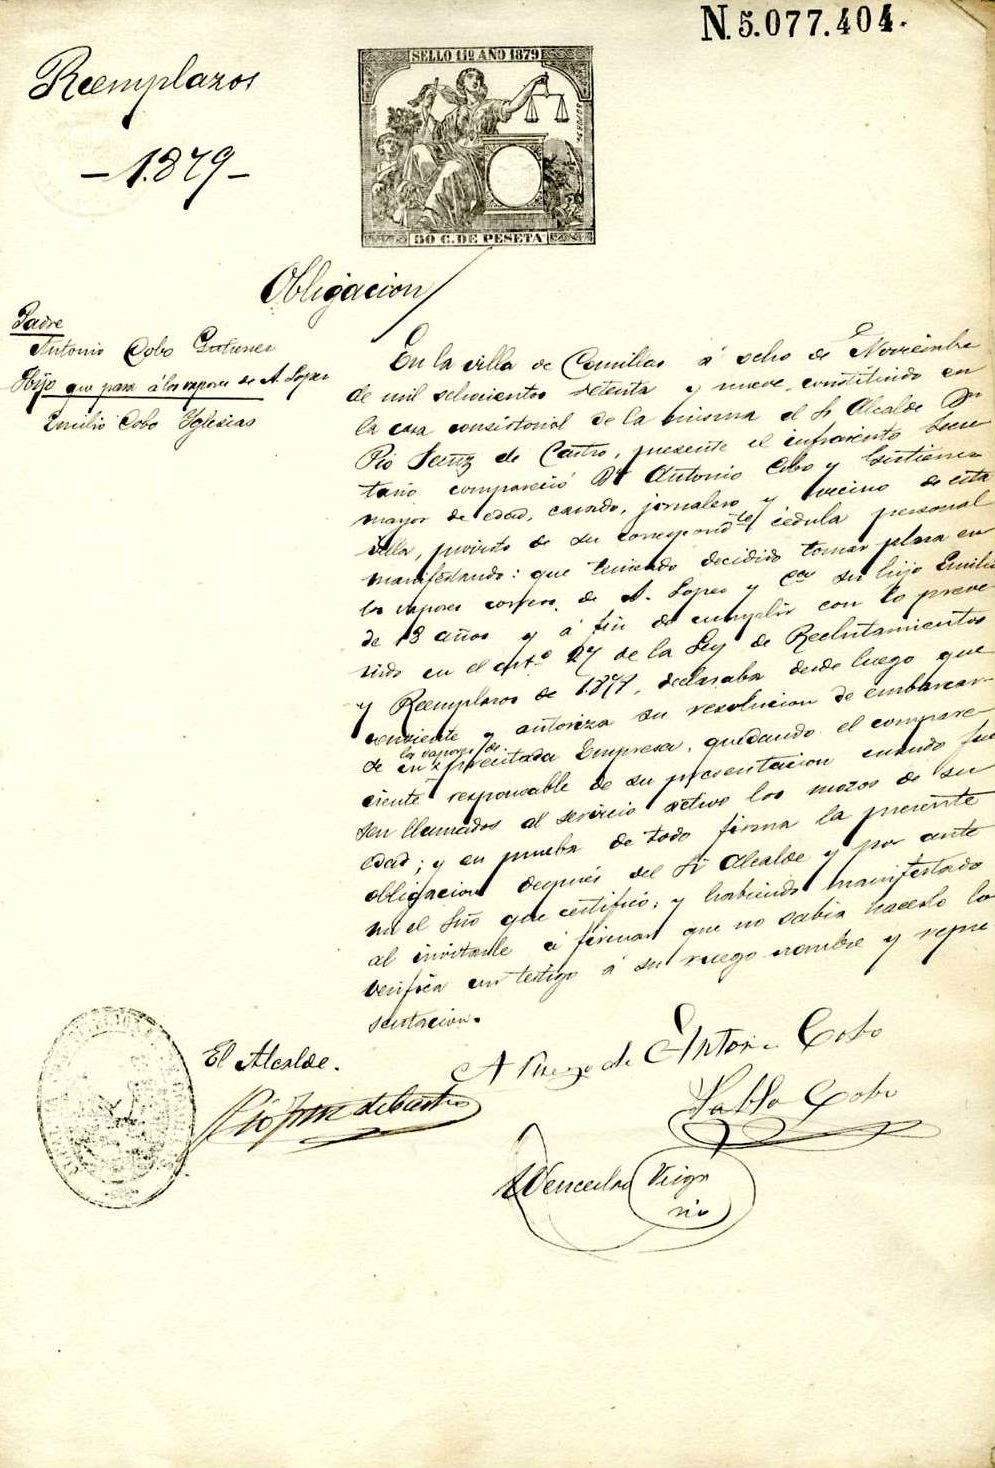 N. 5.077.404.
SELLO 11º AÑO 1879
50 C. DE PESETA
Reemplazos
- 1.879 -
Obligacion
Padre
Antonio Cobo Gutierrez
Hijo que pasa á los vapores de A. Lopez
Emilio Cobo Yglesias
En la villa de Comillas á ocho de Noviembre
de mil ochocientos setenta y nueve, constituido en
la casa consistorial de la misma el Sr Alcalde Dn
Pio Sanz de Castro, presente el infrascrito Secre
tario compareció Dn Antonio Cobo y Gutierrez
mayor de edad, casado, jornalero y vecino de esta
villa, provisto de su correspondte cédula personal
manifestando: que teniendo decidido tomar plaza en
los vapores correos, de A. Lopez y Ca su hijo Emilio
de 13 años y á fin de cumplir con lo preve
nido en el arto 27 de la Ley de Reclutamientos
y Reemplazos de 1.877, declaraba desde luego que
consiente y autoriza su resolucion de embarcar
de en los vapores de precitada Empresa, quedando el compare
ciente responsable de su presentacion cuando fue
sen llamados al servicio activo los mozos de su
edad; y en prueba de todo firma la presente
obligacion después del Sr Alcalde y por ante
mi el Srio que certifico; y habiendo manifestado
al invitarle á firmar que no sabia hacerlo lo
verifica un testigo á su ruego nombre y repre
sentacion.
El Alcalde.
Pio Sanz de Castro
A Ruego de Antonio Cobo
Pablo Cobo
Wenceslao